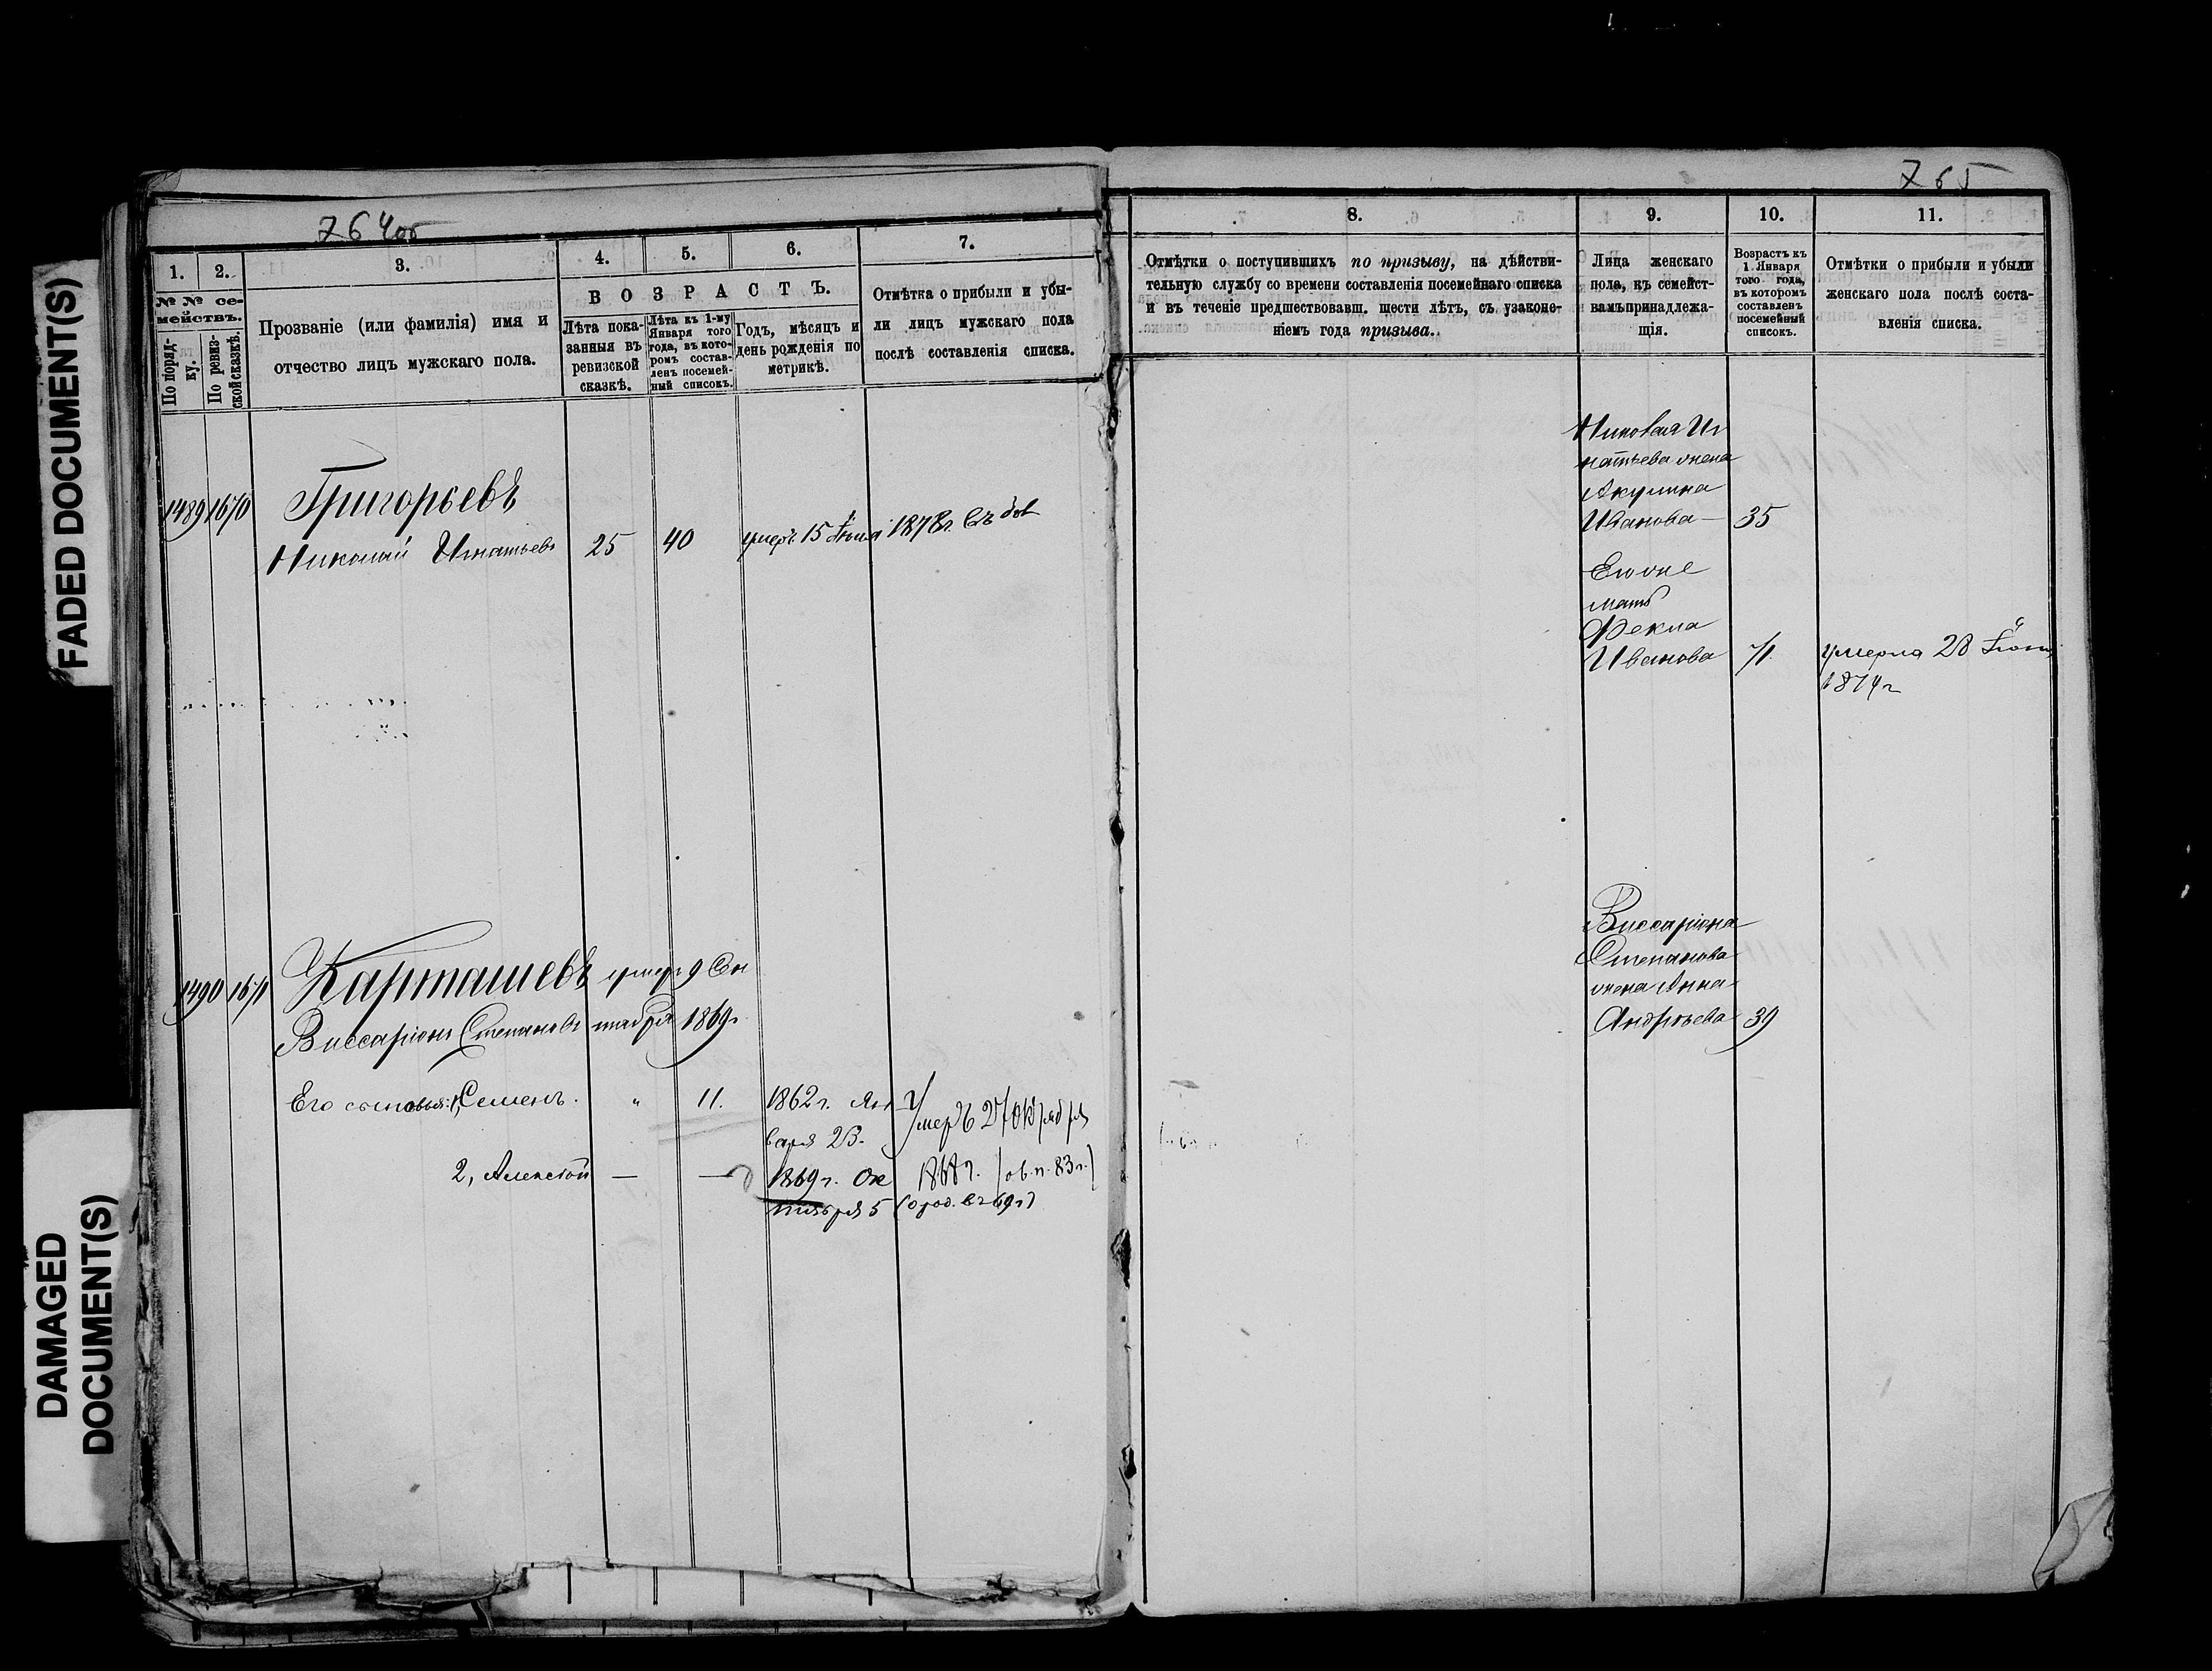 FADED DOCUMENT(S)
DAMAGED
DOCUMENT(S)
764об
1. 2. 3. 4. 5. 6. 7.
№№ се-
мействъ.
По поряд-
ку.
По ревиз-
ской сказкѣ.
Прозваніе (или фамилія) имя и
отчество лицъ мужскаго пола.
ВОЗРАСТЪ.
Лѣта пока-
занныя въ
ревизской
сказкѣ.
Лѣта къ 1-му
Января того
года, въ кото-
ромъ состав-
ленъ посемей-
ный списокъ.
Годъ, мѣсяцъ и
день рожденія по
метрикѣ.
Отмѣтка о прибыли и убы-
ли лицъ мужскаго пола
послѣ составленія списка.
1489 1670 Григорьевъ
Николай Игнатьевъ 25 40 умеръ 15 Іюня 1878г.
1490 1671 Карташевъ умеръ 9 Сен
Виссаріонъ Степановъ тября 1869г.
Его сыновья: 1, Семенъ. „ 11. 1862 г. Ян
варя 23.
Умеръ 27 Октября
2, Алексѣй — — 1869 г. Ок
тября 5
1868 г. (об. п. 83 г.)
(о род. въ 69 г)
765
8. 9. 10. 11.
Отмѣтки о поступившихъ по призыву, на дѣйстви-
тельную службу со времени составленія посемейнаго списка
и въ теченіе предшествовавш. шести лѣтъ, съ узаконе-
ніемъ года призыва.
Лица женскаго
пола, къ семейст-
вамъ принадлежа-
щія.
Возрастъ къ
1 Января
того года,
въ которомъ
составленъ
посемейный
списокъ.
Отмѣтки о прибыли и убыли
женскаго пола послѣ соста-
вленія списка.
Николая Иг
натьева жена
Акулина
Иванова — 35
Его же
мать
Фекла
Иванова 71. умерла 28 Іюня
1874 г
Виссаріона
Степанова
жена Анна
Андреева 39